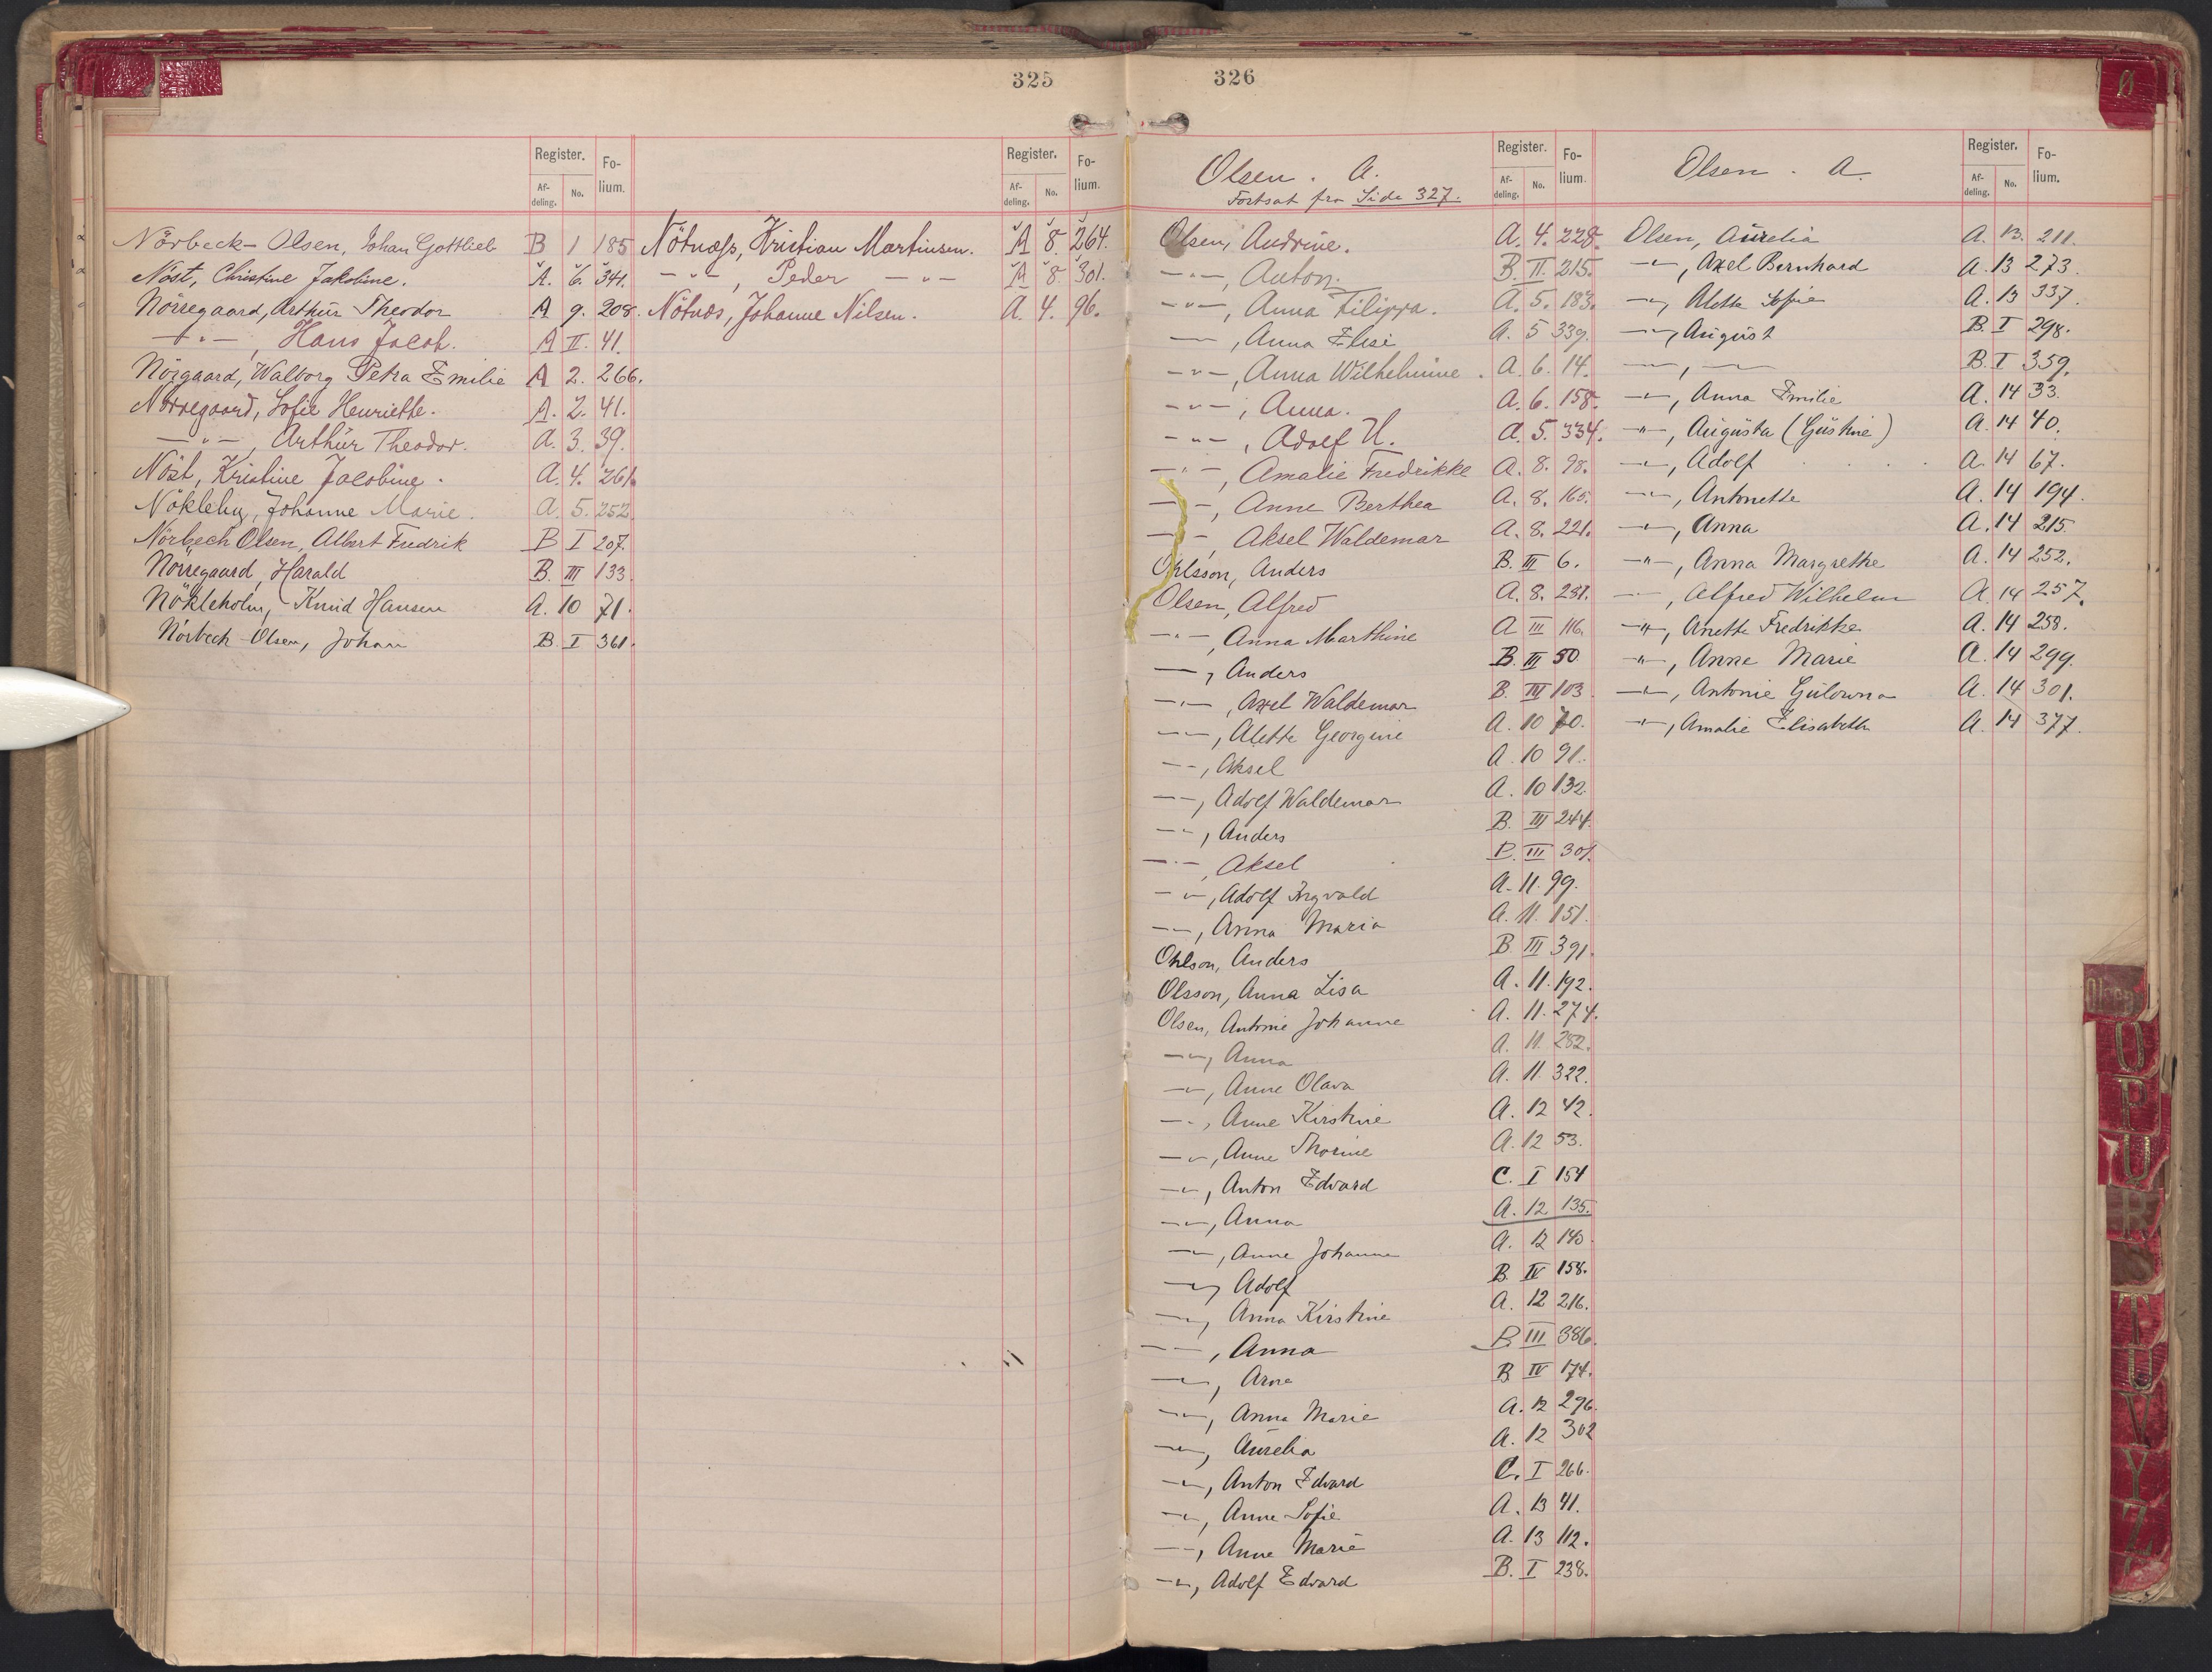 325
Register. Fo-
Af- No. lium.
deling.
Register. Fo-
Af- No. lium.
deling.
Nörbeck-Olsen, Johan Gottlieb B 1 185
Nöst, Christine Jakobine. A. 6. 341.
Nörregaard, Arthur Theodor A 9. 208.
—"—, Hans Jacob. A II. 41.
Nörgaard, Walborg Petra Emilie A 2. 266.
Nörregaard, Sofie Henriette. A. 2. 41.
—"—, Arthur Theodor. A. 3. 39.
Nöst, Kristine Jacobine. A. 4. 261.
Nökleby, Johanne Marie. A. 5. 252.
Nörbech Olsen, Albert Fredrik B I 207.
Nörregaard, Harald B. III 133
Nökleholm, Knud Hansen A. 10 71.
Nörbech-Olsen, Johan B. I 361.
Nötnæss, Kristian Martinsen. A 8. 264.
—"—, Peder —"— A 8. 301.
Nötnæs, Johanne Nilsen. A. 4. 96.
326
Ø
Olsen. A.
Fortsat fra Side 327.
Register. Fo-
Af- No. lium.
deling.
Olsen. A.
Register. Fo-
Af- No. lium.
deling.
Olsen, Andrine. A. 4. 228.
—"—, Anton. B. II. 215.
—"—, Anna Filippa. A. 5. 183.
—"—, Anna Elise A. 5 339.
—"—, Anna Wilhelmine. A. 6. 14.
—"—, Anna. A. 6. 158.
—"—, Adolf H. A. 5. 334.
—"—, Amalie Fredrikke A. 8. 98.
—"—, Anne Berthea A. 8. 165.
—"—, Aksel Waldemar A. 8. 221.
Ohlsson, Anders B. III 6.
Olsen, Alfred A. 8. 281.
—"—, Anna Marthine A III 116.
—, Anders B. III 50
—"—, Axel Waldemar B. III 103
—"—, Alette Georgine A. 10 70.
—"—, Aksel A. 10 91.
—"—, Adolf Waldemar A. 10 132.
—"—, Anders B. III 244.
—"—, Aksel B. III 301.
—"—, Adolf Ingvald A. 11. 99.
—"—, Anna Maria A. 11. 151.
Ohlson, Anders B III 391.
Olsson, Anna Lisa A. 11. 192.
Olsen, Antonie Johanne A. 11. 274.
—"—, Anna A. 11. 282.
—"—, Anne Olava A. 11 322.
—"—, Anne Kirstine A. 12 42.
—"—, Anne Thorine A. 12 53.
—"—, Anton Edvard C. I 154
—"—, Anna A. 12 135.
—"—, Anne Johanne A. 12 145
—"—, Adolf B. IV 158.
—"—, Anna Kirstine A. 12 216.
—"—, Anna B. III 386.
—"—, B. IV 174.
—"—, Anna Marie A. 12 296.
—"—, Aurelia A. 12 302
—"—, Anton Edvard C. I 266.
—"—, Anne Sofie A. 13 41.
—"—, Anne Marie A. 13 112.
—"—, Adolf Edvard B. I 238.
Olsen, Aurelia A. 13. 211.
—"—, Axel Bernhard A. 13 273.
—"—, Aletta Sofie A. 13 337.
—"—, August B. I 298.
—"—, —"— B. I 359.
—"—, Anna Emilie A. 14 33.
—"—, Augusta (Gustine) A. 14 40.
—"—, Adolf A. 14 67.
—"—, Antonette A. 14 194.
—"—, Anna A. 14 215.
—"—, Anna Margrethe A. 14 252.
—"—, Alfred Wilhelm A. 14 257.
—"—, Anette Fredrikke A. 14 258.
—"—, Anne Marie A. 14 299.
—"—, Antonie Gulowna A. 14 301.
—"—, Amalie Elisabeth A. 14 377.
Olsen
O
P
U
R
S
T
U
V
Y
Z